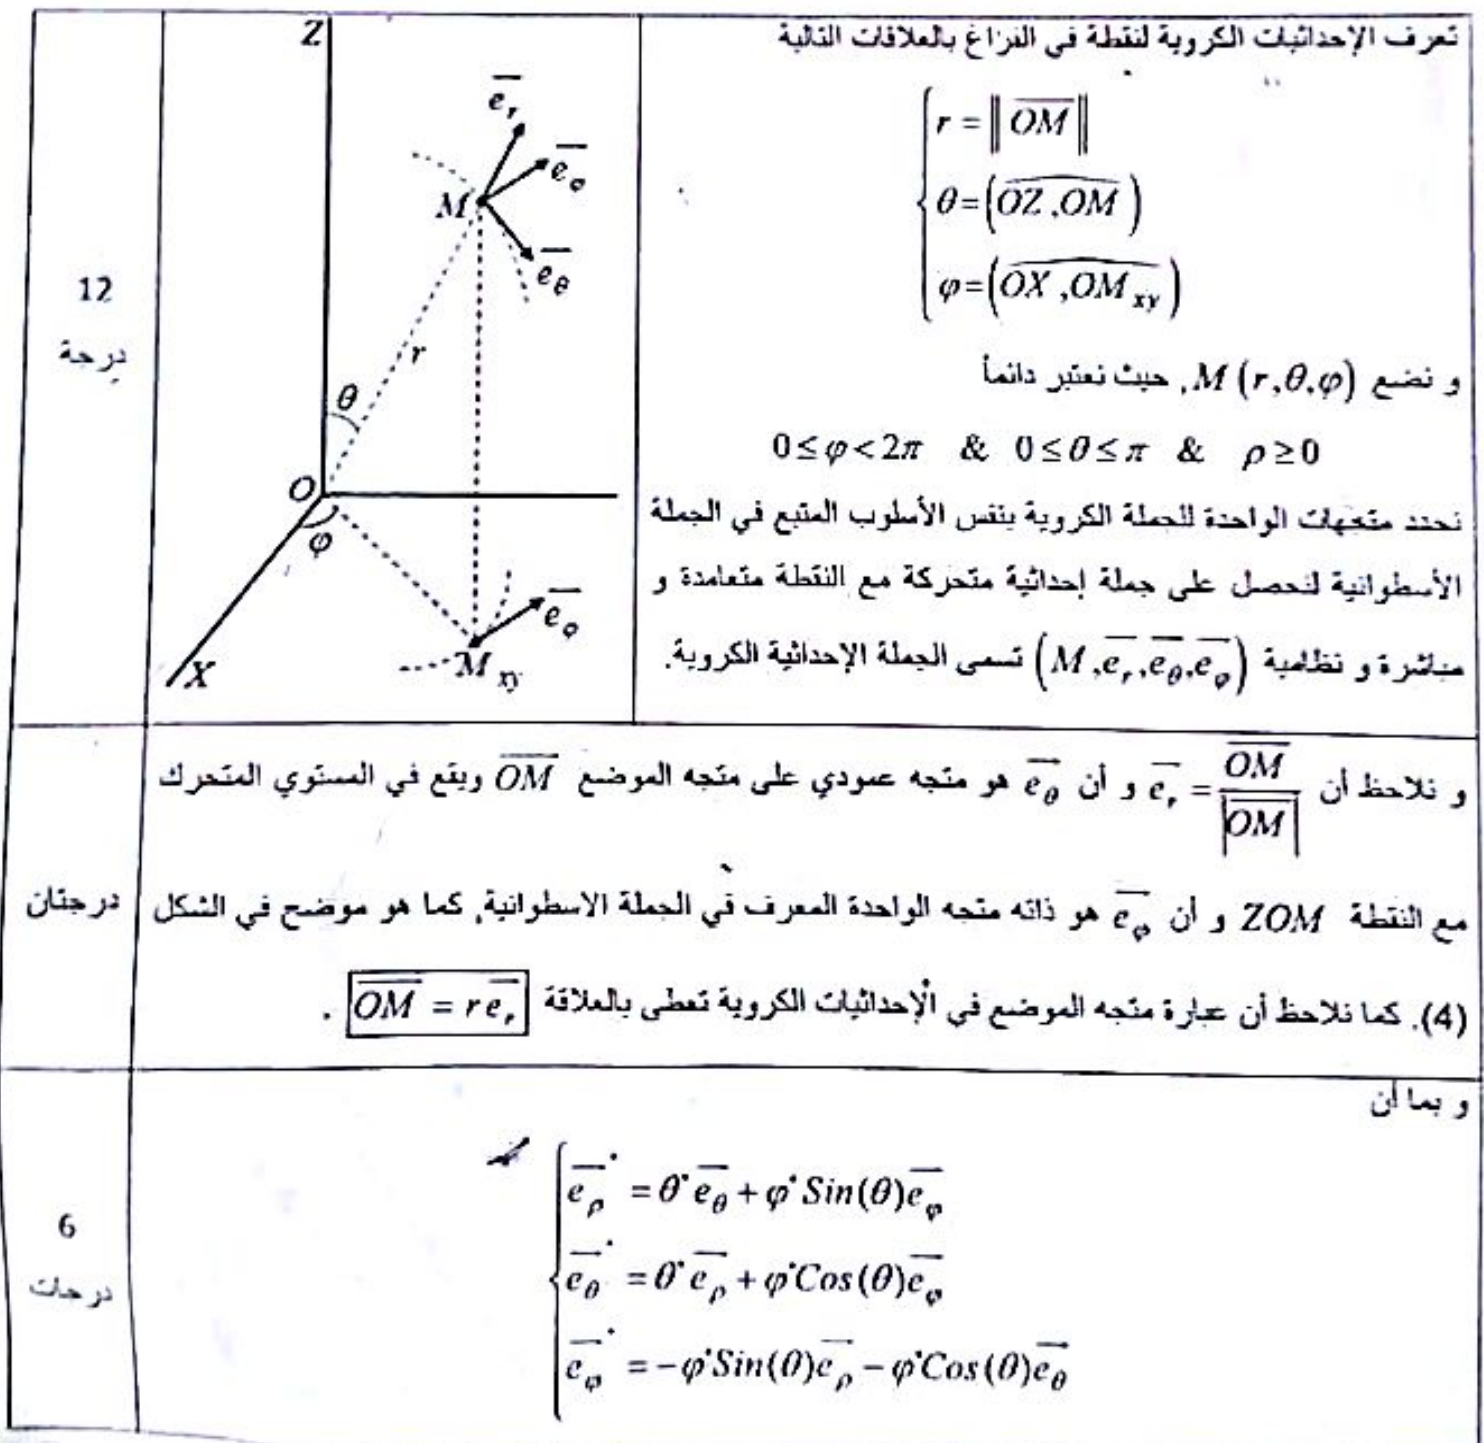 تعرف الإحداثيات الكروية لنقطة في الفراغ بالعلاقات التالية
r = ‖OM‖
θ = (OZ , OM)
φ = (OX , OM xy)
و نضع M (r,θ,φ), حيث نعتبر دائماً
0 ≤ φ < 2π & 0 ≤ θ ≤ π & ρ ≥ 0
نحدد متجهات الواحدة للجملة الكروية بنفس الأسلوب المتبع في الجملة
الأسطوانية لنحصل على جملة إحداثية متحركة مع النقطة متعامدة و
مباشرة و نظامية (M, e_r, e_θ, e_φ) تسمى الجملة الإحداثية الكروية.
Z
e_r
e_φ
M
e_θ
r
θ
O
φ
e_φ
X
M xy
12
درجة
و نلاحظ أن e_r = OM / |OM| و أن e_θ هو متجه عمودي على متجه الموضع OM ويقع في المستوي المتحرك
مع النقطة ZOM و أن e_φ هو ذاته متجه الواحدة المعرف في الجملة الاسطوانية, كما هو موضح في الشكل
(4). كما نلاحظ أن عبارة متجه الموضع في الإحداثيات الكروية تعطى بالعلاقة OM = r e_r .
درجتان
و بما أن
e_ρ˙ = θ˙ e_θ + φ˙ Sin(θ) e_φ
e_θ˙ = θ˙ e_ρ + φ˙ Cos(θ) e_φ
e_φ˙ = −φ˙ Sin(θ) e_ρ − φ˙ Cos(θ) e_θ
6
درجات